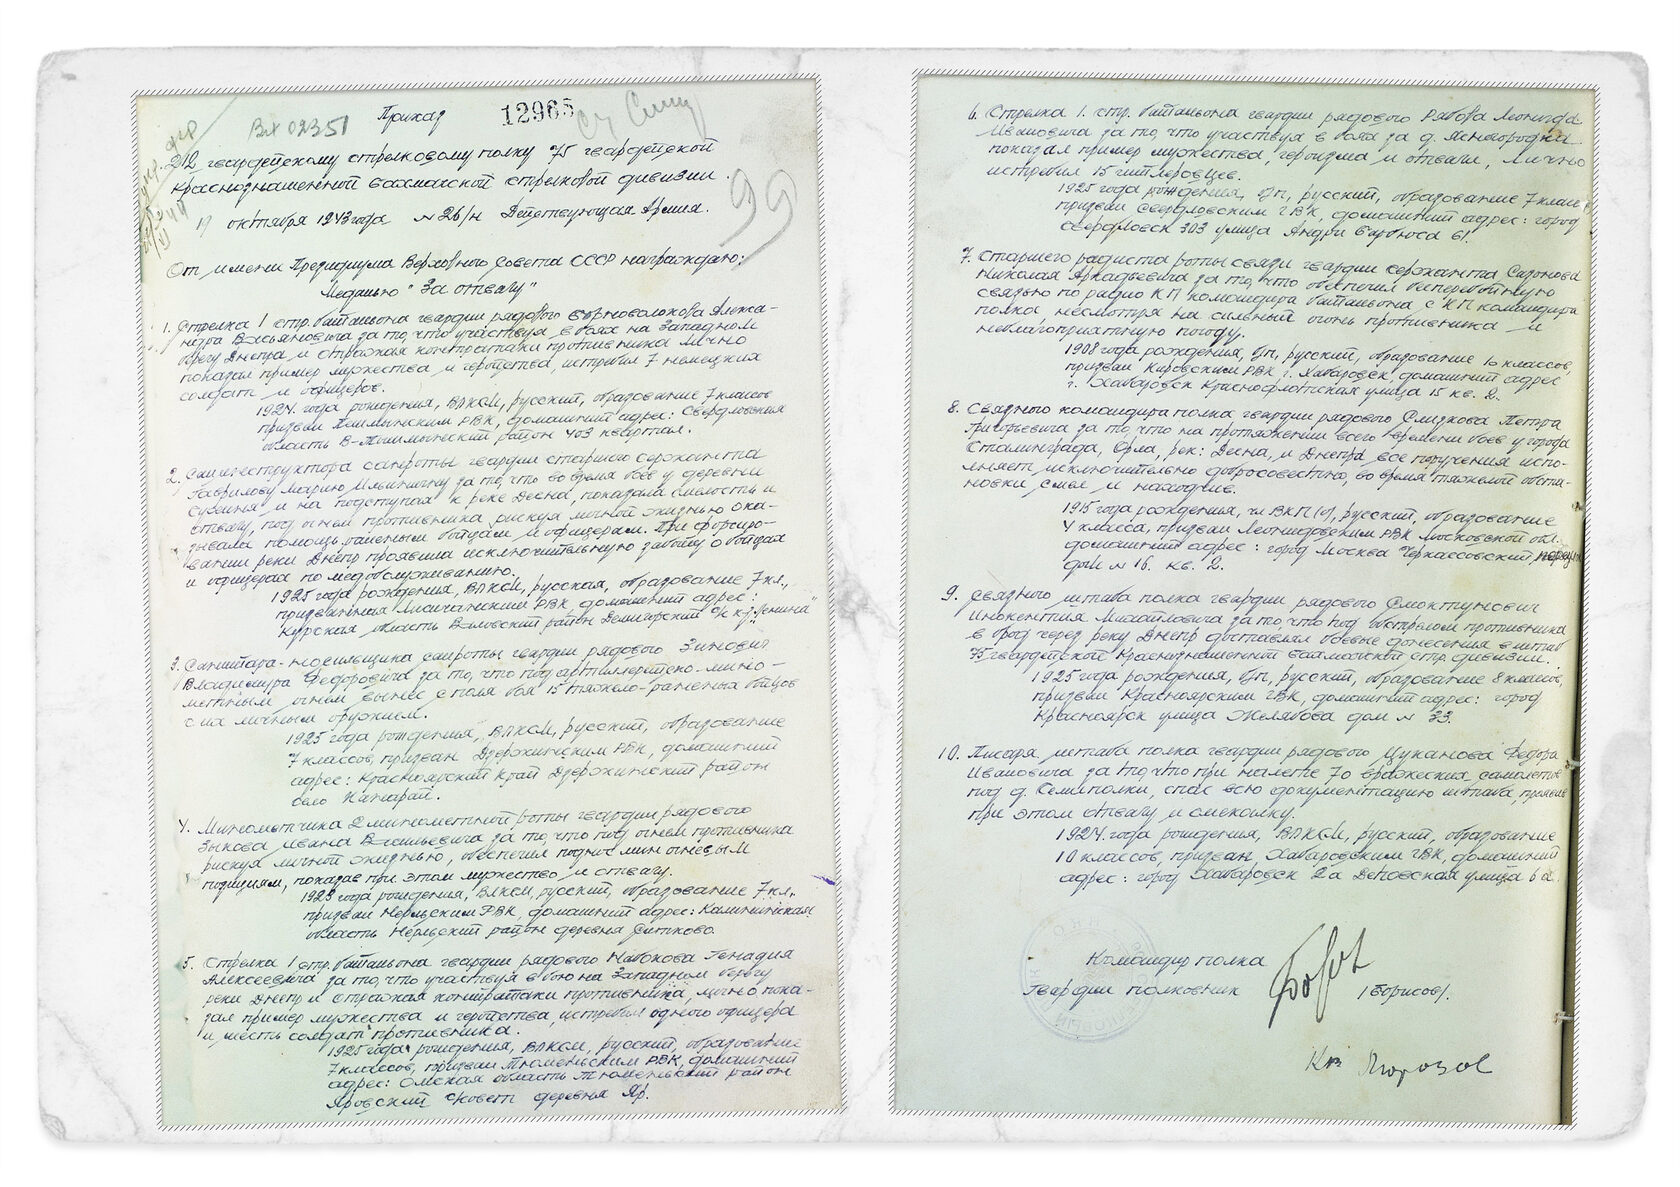 Вх 02351
Приказ
12965
212 гвардейскому стрелковому полку 75 гвардейской
Краснознаменной Бахмачской стрелковой дивизии.
99
19 октября 1943 года № 26/н Действующая Армия.
От имени Президиума Верховного Совета СССР награждаю:
Медалью "За отвагу"
1. Стрелка 1 стр. батальона гвардии рядового Алекса-
ндра за то, что участвуя в боях на Западном
берегу Днепра и отражая контратаки противника лично
показал пример мужества и геройства, истребил 7 немецких
солдат и офицеров.
1924 года рождения, ВЛКСМ, русский, образование 7 классов
призван РВК, домашний адрес: Свердловская
область В-Тагильский район 403 квартал.
2. Санинструктора санроты гвардии старшего сержанта
Гаврилову Марию Ильиничну за то, что во время боев у деревни
и на подступах к реке Десна, показала смелость и
отвагу, под огнем противника рискуя личной жизнью ока-
зывала помощь раненым бойцам и офицерам. При форсиро-
вании реки Днепр проявила исключительную заботу о бойцах
и офицерах по медобслуживанию.
1925 года рождения, ВЛКСМ, русская, образование 7 кл.,
призванная РВК, домашний адрес:
Курская область район с/с к-з "Ленина"
3. Санитара-носильщика санроты гвардии рядового Зиновия
Владимира Федоровича за то, что под артиллерийско-мино-
метным огнем вынес с поля боя 15 тяжело-раненых бойцов
с их личным оружием.
1925 года рождения, ВЛКСМ, русский, образование
7 классов, призван Дзержинским РВК, домашний
адрес: Красноярский край Дзержинский район
село
4. Минометчика 2 минометной роты гвардии рядового
Зыкова Ивана Васильевича за то, что под огнем противника
рискуя личной жизнью, обеспечил поднос мин огневым
позициям, показав при этом мужество и отвагу.
1923 года рождения, ВЛКСМ, русский, образование 7 кл.,
призван Нерльским РВК, домашний адрес: Калининская
область Нерльский район деревня Ситково.
5. Стрелка 1 стр. батальона гвардии рядового Набокова Генадия
Алексеевича за то, что участвуя в бою на Западном берегу
реки Днепр и отражая контратаки противника, лично пока-
зал пример мужества и геройства, истребил одного офицера
и шесть солдат противника.
1925 года рождения, ВЛКСМ, русский, образование
7 классов, призван Тюменьским РВК, домашний
адрес: Омская область Тюменьский район
Яровский с/совет деревня Яр.
6. Стрелка 1 стр. батальона гвардии рядового Рябова Леонида
Ивановича за то, что участвуя в боях за д. Ясногородка
показал пример мужества, героизма и отваги, лично
истребил 15 гитлеровцев.
1925 года рождения, б/п, русский, образование 7 клас.
призван Свердловским ГВК, домашний адрес: город
Свердловск 303 улица Андри Барбюса 61.
7. Старшего радиста роты связи гвардии сержанта Сазонова
Николая Аркадьевича за то, что обеспечил бесперебойную
связь по радио КП командира батальона с КП командира
полка, несмотря на сильный огонь противника и
неблагоприятную погоду.
1908 года рождения, б/п, русский, образование 10 классов,
призван Кировским РВК г. Хабаровск, домашний адрес
г. Хабаровск Краснофлотская улица 15 кв. 2.
8. Связного командира полка гвардии рядового Слизкова Петра
Григорьевича за то, что на протяжении всего времени боев у города
Сталинграда, Орла, рек: Десна, и Днепра все поручения испо-
лняет исключительно добросовестно, во время тяжелой обста-
новки, смел и находчив.
1915 года рождения, чл ВКП(б), русский, образование
4 класса, призван Ленинским РВК Московской обл.
домашний адрес: город Москва Черкассовский
дом № 16. кв. 2.
9. Связного штаба полка гвардии рядового Смоктунович
Инокентия Михайловича за то, что под обстрелом противника
в брод через реку Днепр доставлял боевые донесения в штаб
75 гвардейской Краснознаменной Бахмачской стр. дивизии.
1925 года рождения, б/п, русский, образование 8 классов,
призван Красноярским ГВК, домашний адрес: город
Красноярск улица Желябова дом № 33.
10. Писаря штаба полка гвардии рядового Цуканова Федора
Ивановича за то, что при налете 70 вражеских самолетов
под д. Семиполки, спас всю документацию штаба, проявив
при этом отвагу и смекалку.
1924 года рождения, ВЛКСМ, русский, образование
10 классов, призван Хабаровским ГВК, домашний
адрес: город Хабаровск 2а Деповская улица 6 а.
Командир полка
Гвардии полковник /Борисов/.
Морозов